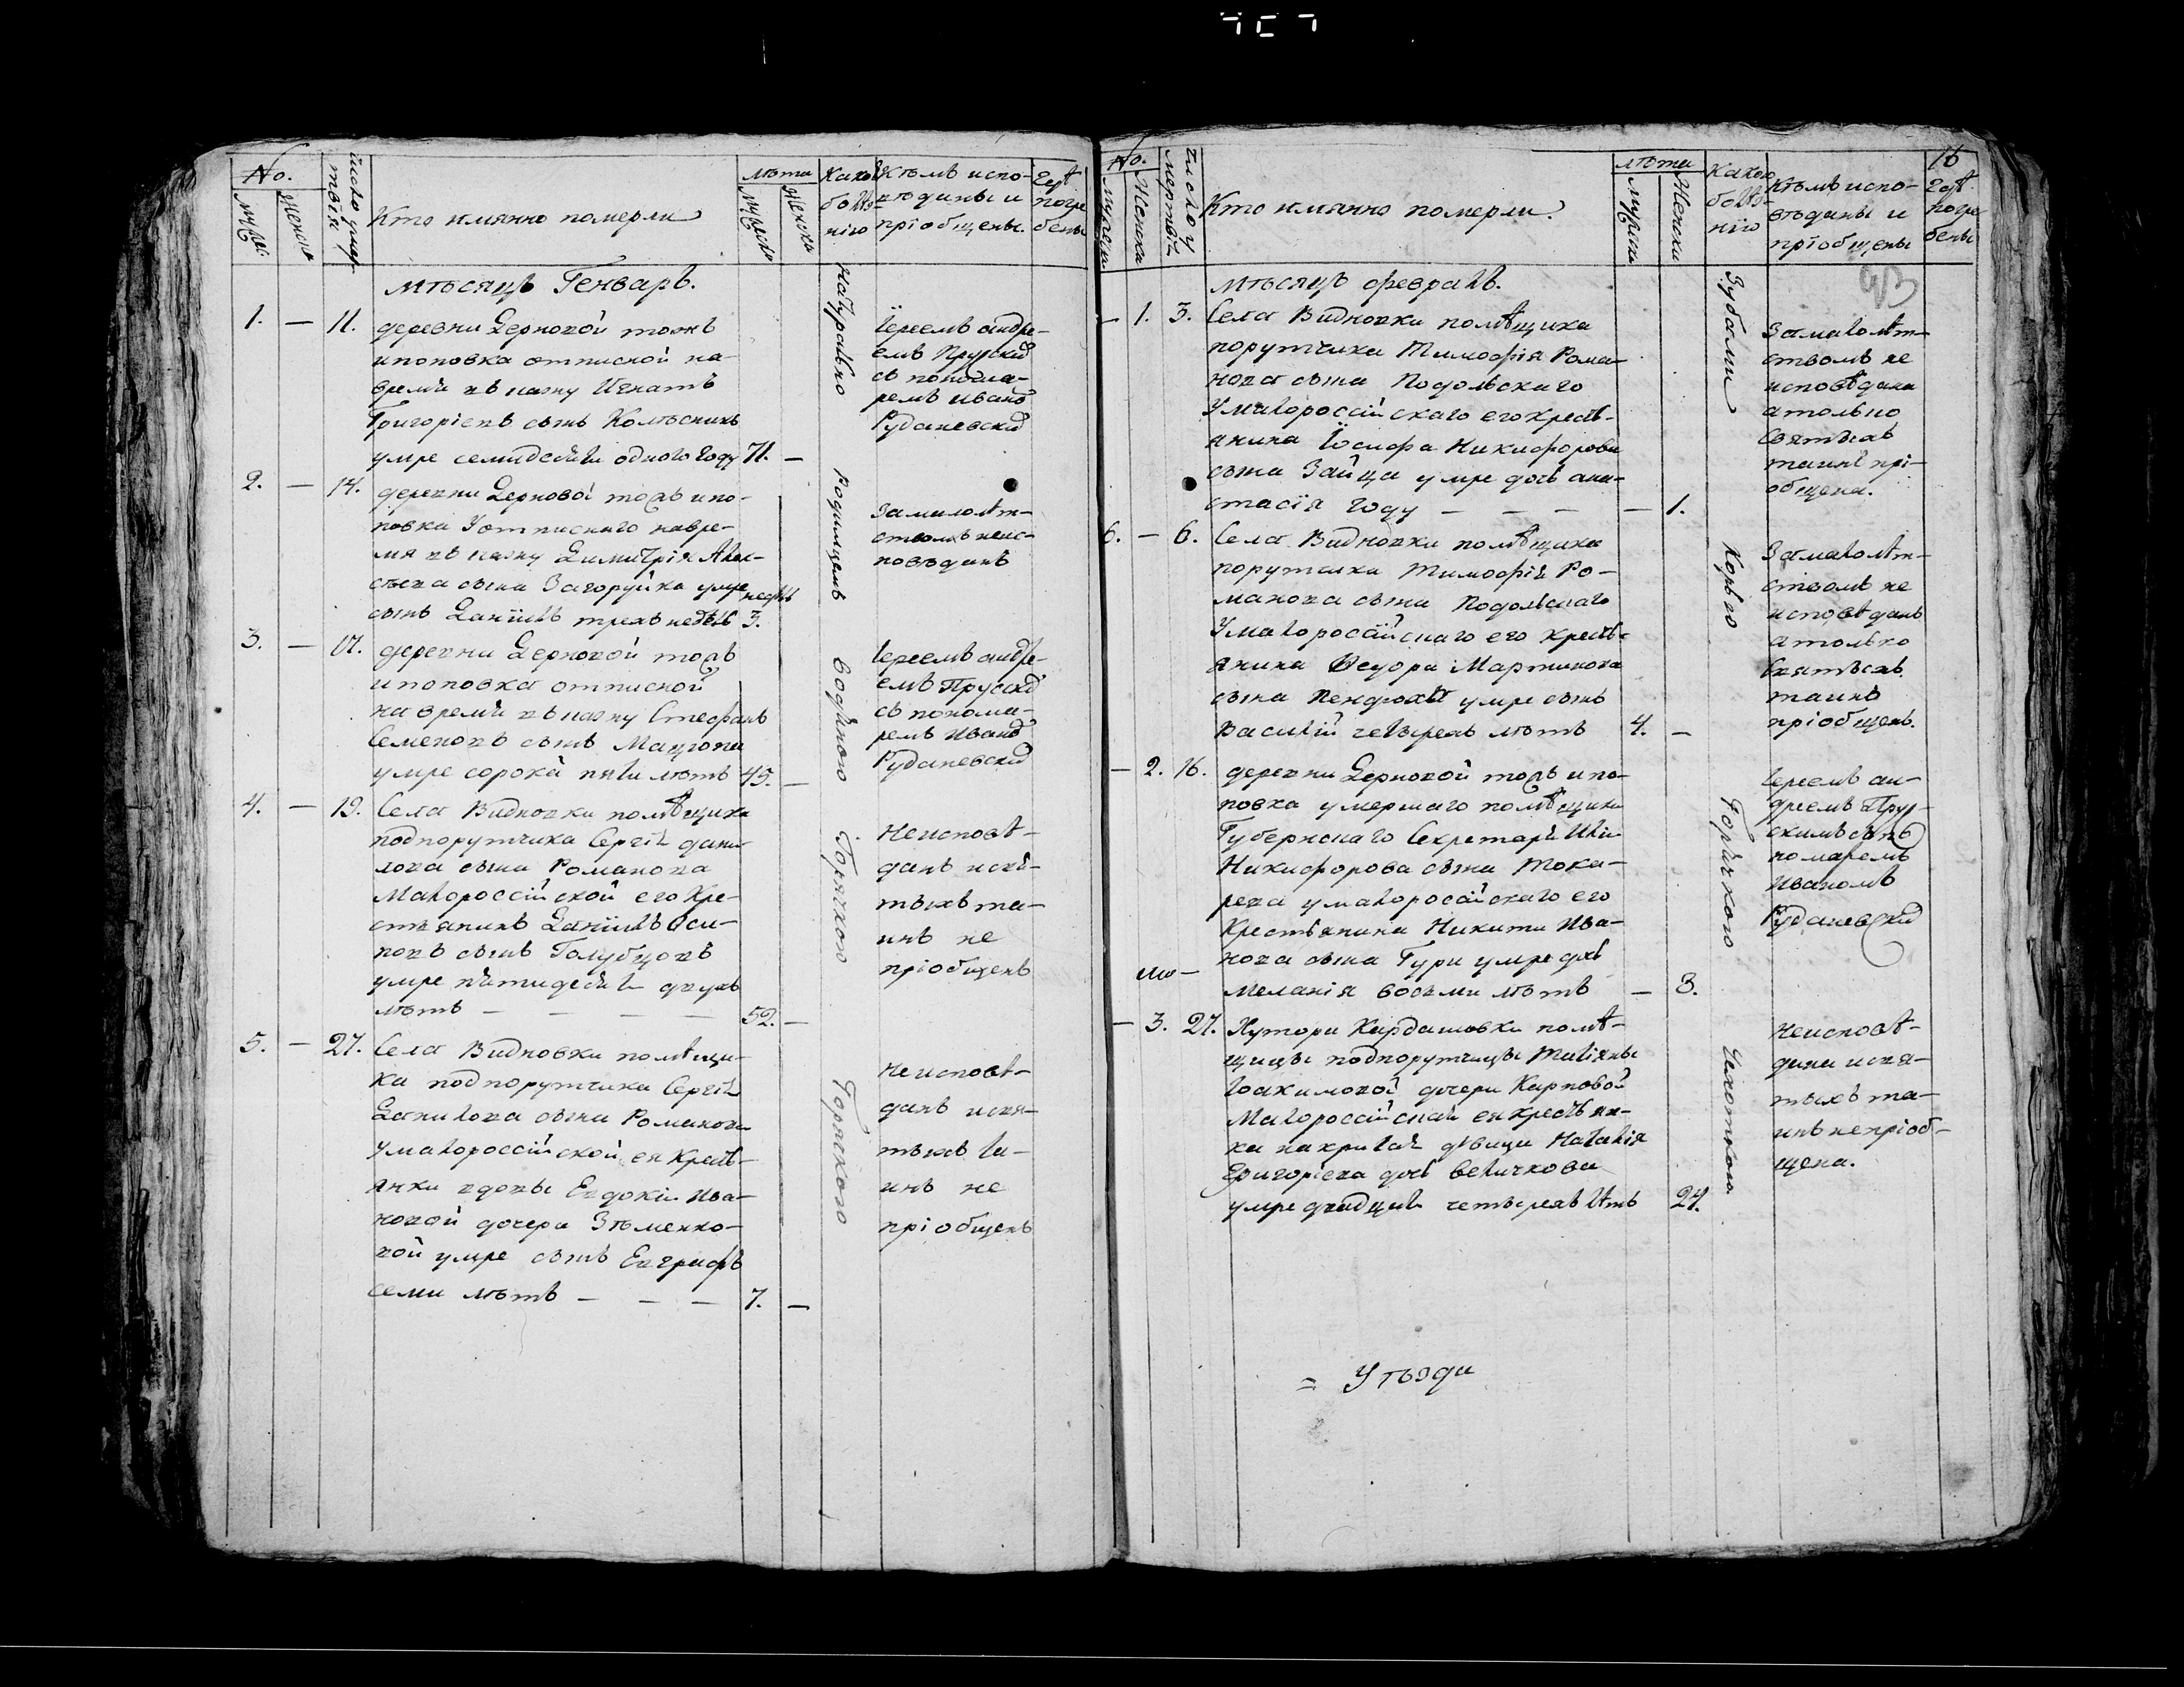 No.
мужес:
женска
число умер-
твія
Кто имянно померли
лѣта
мужеска
женска
какою
болѣз-
нію
Кѣмъ испо-
вѣданы и
пріобщены.
Гдѣ
погре
бены
мѣсяцъ Генварь.
1. — 11. деревни Дерновой тожъ
и поповка отписной на-
время въ казну Игнатъ
Григоріевъ сынъ Колѣсникъ
умре семидесяти одного году 71. —
натурално
Іереемъ андре-
емъ Прускй
съ понома-
ремъ Ивано
Руданевскй
2. — 14. деревни Дерновой тожъ и по-
повка У отписнаго навре-
мя въ казну Димитрія Алек-
сѣева сына Загоруйка умре
сынъ Даніилъ трехъ недѣль недѣль 3.
Родимцемъ
За малолѣт-
ствомъ неис-
повѣданъ
3. — 17. деревни Дерновой тожъ
и поповка отписной
на время въ казну Стефанъ
Семеновъ сынъ Мацгопа
умре сорока пяти лѣтъ 45. —
водяною
Іереемъ андре-
емъ Прусскй
съ понома-
ремъ Ивано
Руданевскй
4. — 19. Села Видновки помѣщика
подпорутчика Сергѣя дани-
лова сына Романова
Малороссійской его кре-
стьянинъ Даніилъ Оси-
повъ сынъ Голубцовъ
умре пятидесяти двухъ
лѣтъ — — — — 52. —
Горячкою
Неисповѣ-
данъ исвя-
тыхъ та-
инъ не
пріобщенъ
5. — 27. Села Видновки помѣщи-
ка подпорутчика Сергѣя
Данилова сына Романова
У малороссійской ея крестъ-
янки вдовы Евдокіи Ива-
новой дочери Зѣменко-
вой умре сынъ Евграфъ
семи лѣтъ — — — 7. —
Горячкою
Неисповѣ-
данъ исвя-
тыхъ та-
инъ не
пріобщенъ
16
No.
мужеска
Женска
число у
мертвія
Кто имянно померли.
лѣта
мужеска
Женска
Какою
болѣз-
нію
Кѣмъ испо-
вѣданы и
пріобщены
Гдѣ
погре
бены
мѣсяцъ февраль.
— 1. 3. Села Видновки помѣщика
порутчика Тимофія Рома-
нова сына Подольскаго
У малороссійскаго его крестъ-
янина Іосифа Никифорова
сына Зайца умре дочь ана-
стасія году — — — — 1.
Зубами
За малолѣт-
ствомъ не
исповѣдана
атолько
святыхъ
таинъ прі-
общена.
6. — 6. Села Видновки помѣщика
порутчика Тимофія Ро-
манова сына Подолскаго
У малороссійскаго его крестъ-
янина Ѳедора Мартинова
сына умре сынъ
Василій четырехъ лѣтъ 4. —
Корью
За малолѣт-
ствомъ не
исповѣданъ
атолько
святыхъ
таинъ
пріобщенъ.
— 2. 16. деревни Дерновой тожъ и по-
повка умершаго помѣщика
Губернскаго Секретаря Ильи
Никифорова сына Тока-
рева у малоросійскаго его
Крестьянина Никиты Ива-
нова сына Гури умре дочь
Меланія восьми лѣтъ — 8.
Горячкою
Іереемъ ан-
дреемъ Прус-
скимъ съпо
номаремъ
Иваномъ
Руданевскй
— 3. 27. Хутора Кардашовки помѣ-
щицы подпорутчицы Татіяны
Іоакимовой дочери Карповой
Малороссійская ея крестьян-
ка дѣвица Наталія
Григоріева дочь Величкова
умре двадцати четырехъ лѣтъ 24.
Чехоткою
Неисповѣ-
дана исвя-
тыхъ та-
инъ непріоб-
щена.
= Уѣзда